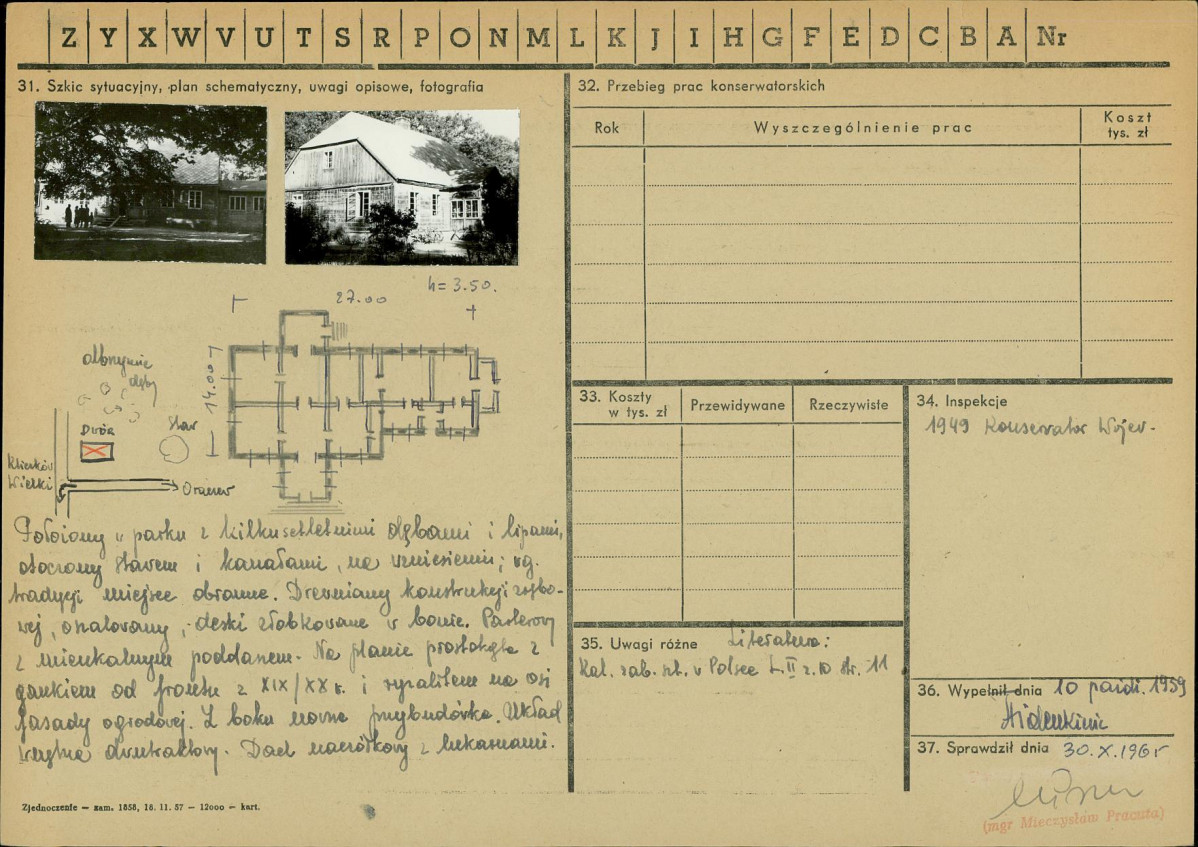 Z Y X W V U T S R P O N M L K J I H G F E D C B A Nr
31. Szkic sytuacyjny, plan schematyczny, uwagi opisowe, fotografia
h= 3.50.
27.00
14.00
olbrzymie
dęby
Dwór
Staw
Wielki
Położony w parku z kilkusetletnimi dębami i lipami,
otoczony stawem i kanałami, na wzniesieniu; wg.
tradycji miejsce obronne. Drewniany konstrukcji zrębo-
wej, oszalowany, deski żłobkowane w bonie. Parterowy
z mieszkalnym poddaszem. Na planie prostokąta z
gankiem od frontu z XIX/XX w. i ryzalitem na osi
fasady ogrodowej. Z boku nowsza przybudówka. Układ
wnętrza dwutraktowy. Dach naczółkowy z lukarnami.
Zjednoczenie — zam. 1858, 18. 11. 57 — 12000 — kart.
32. Przebieg prac konserwatorskich
Rok Wyszczególnienie prac Koszt
tys. zł
33. Koszty
w tys. zł Przewidywane Rzeczywiste
34. Inspekcje
1949 Konserwator Wojew.
35. Uwagi różne Literatura:
Kat. zab. szt. w Polsce t. II z. 10 str. 11
36. Wypełnił dnia 10 paźdź. 1959
37. Sprawdził dnia 30.X.1961
(mgr Mieczysław Pracuta)